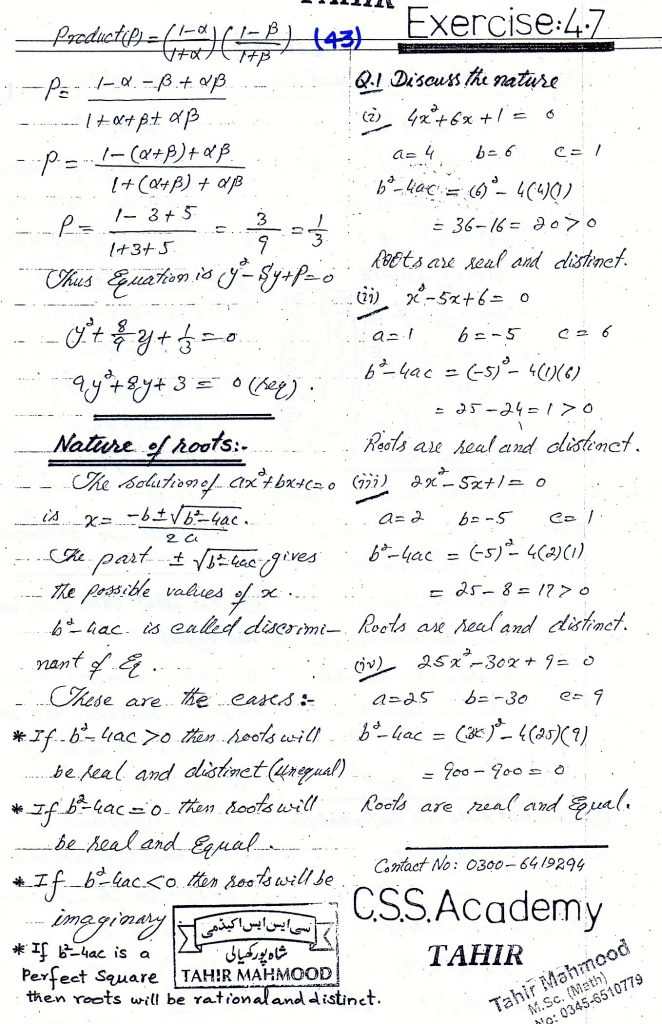 TAHIR
Product(P) = (1-α / 1+α) (1-β / 1+β)
(43)
P = 1-α-β+αβ / 1+α+β+αβ
P = 1-(α+β)+αβ / 1+(α+β)+αβ
P = 1-3+5 / 1+3+5 = 3/9 = 1/3
Thus Equation is y²-Sy+P=0
y²+8/9 y+1/3=0
9y²+8y+3 = 0 (req).
Nature of roots:-
The solution of ax²+bx+c=0
is x= -b±√b²-4ac / 2a.
The part ±√b²-4ac gives
the possible values of x.
b²-4ac is called discrimi-
nant of Eq.
These are the cases:-
* If b²-4ac>0 then roots will
be real and distinct (unequal)
* If b²-4ac=0 then roots will
be real and Equal.
* If b²-4ac<0 then roots will be
imaginary
* If b²-4ac is a
Perfect Square
then roots will be rational and distinct.
سی ایس ایس اکیڈمی
شاہ پور کھیالی
TAHIR MAHMOOD
Exercise:4.7
Q.1 Discuss the nature
(i) 4x²+6x+1 = 0
a=4 b=6 c=1
b²-4ac = (6)²-4(4)(1)
= 36-16=20>0
Roots are real and distinct.
(ii) x²-5x+6=0
a=1 b=-5 c=6
b²-4ac = (-5)²-4(1)(6)
= 25-24=1>0
Roots are real and distinct.
(iii) 2x²-5x+1=0
a=2 b=-5 c=1
b²-4ac = (-5)²-4(2)(1)
= 25-8=17>0
Roots are real and distinct.
(iv) 25x²-30x+9=0
a=25 b=-30 c=9
b²-4ac = (30)²-4(25)(9)
= 900-900=0
Roots are real and Equal.
Contact No: 0300-6419294
C.S.S.Academy
TAHIR
Tahir Mahmood
M.Sc. (Math)
No: 0345-6510779